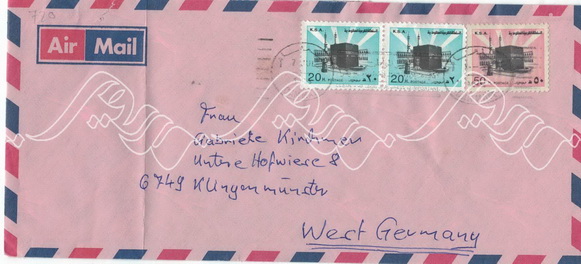 Air Mail
K.S.A. K.S.A. K.S.A.
20 H. POSTAGE ٢٠ 20 H. POSTAGE ٢٠ 50 ٥٠
Frau
Gabriele
Untere Hofwiese 8
6749 Klingenmünster
West Germany